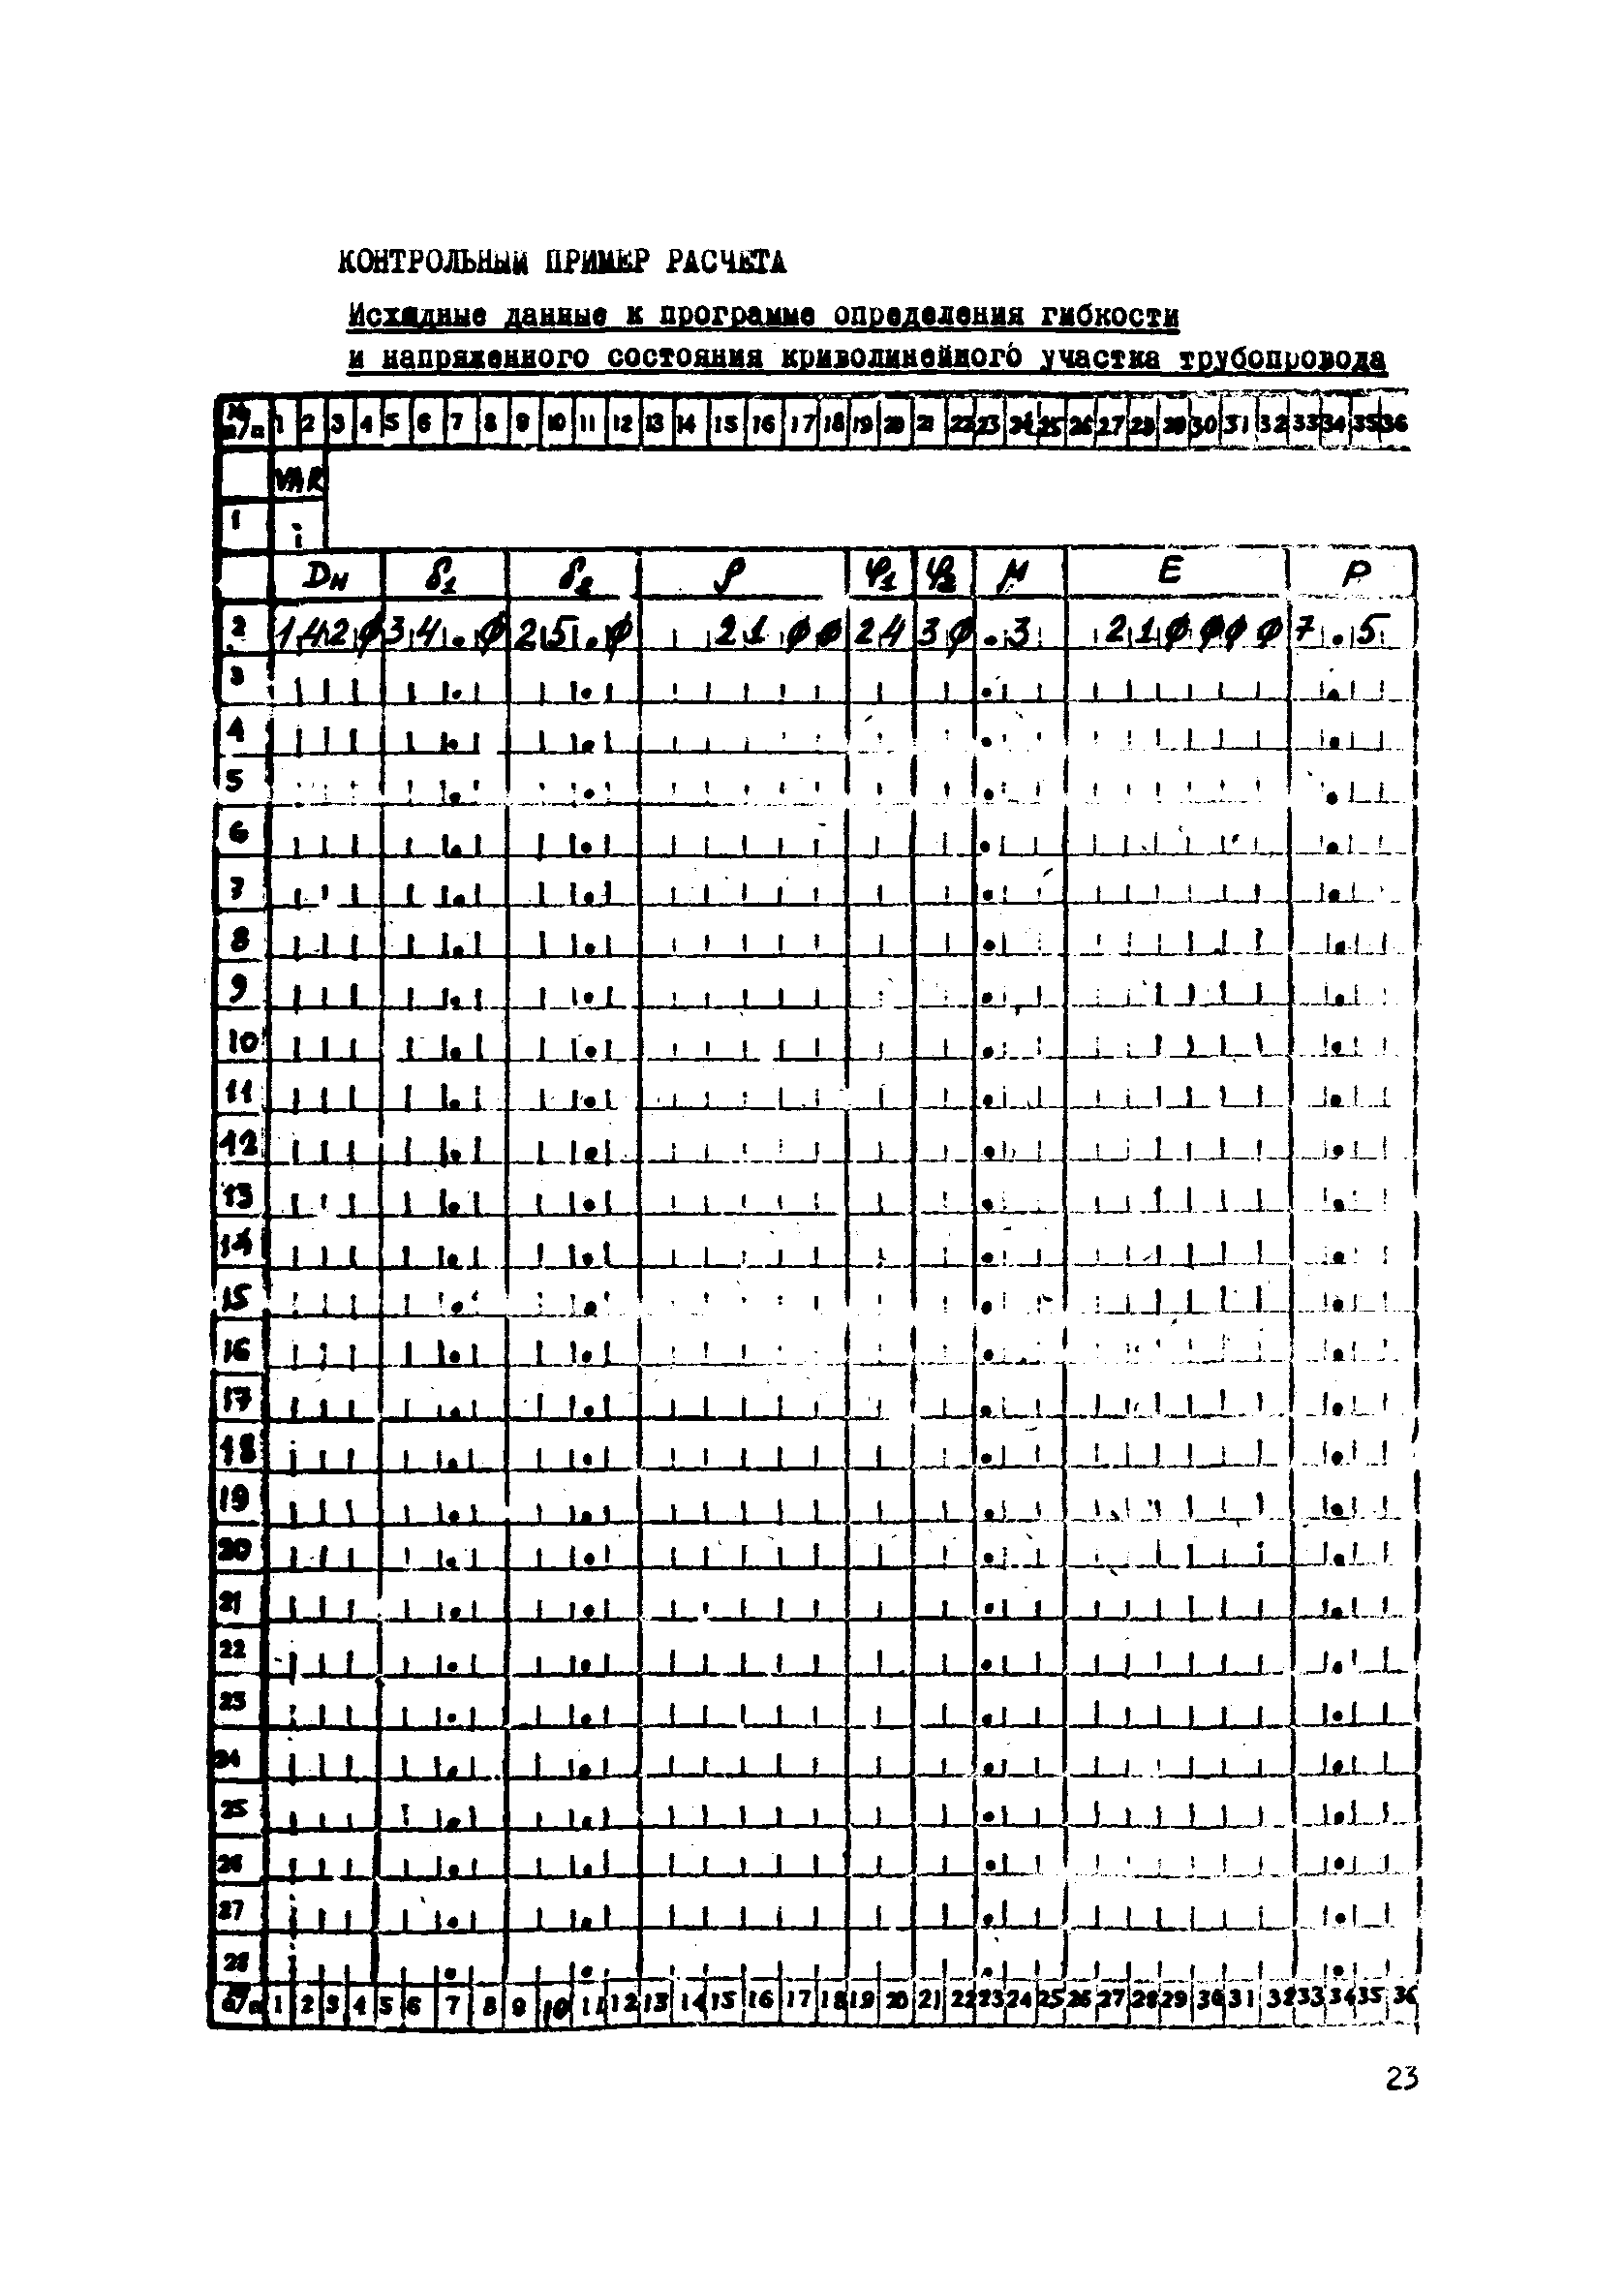 КОНТРОЛЬНЫЙ ПРИМЕР РАСЧЕТА
Исходные данные к программе определения гибкости
и напряженного состояния криволинейного участка трубопровода
№ п/п 1 2 3 4 5 6 7 8 9 10 11 12 13 14 15 16 17 18 19 20 21 22 23 24 25 26 27 28 29 30 31 32 33 34 35 36
VAR
1 i
Dн δ1 δ2 ρ φ1 φ2 μ E P
2 142φ 34.φ 25.φ 21φφ 24 3φ .3 21φφφφ 7.5
3 . . . .
4 . . . .
5 . . . .
6 . . . .
7 . . . .
8 . . . .
9 . . . .
10 . . . .
11 . . . .
12 . . . .
13 . . . .
14 . . . .
15 . . . .
16 . . . .
17 . . . .
18 . . . .
19 . . . .
20 . . . .
21 . . . .
22 . . . .
23 . . . .
24 . . . .
25 . . . .
26 . . . .
27 . . . .
28 . . . .
п/п 1 2 3 4 5 6 7 8 9 10 11 12 13 14 15 16 17 18 19 20 21 22 23 24 25 26 27 28 29 30 31 32 33 34 35 36
23